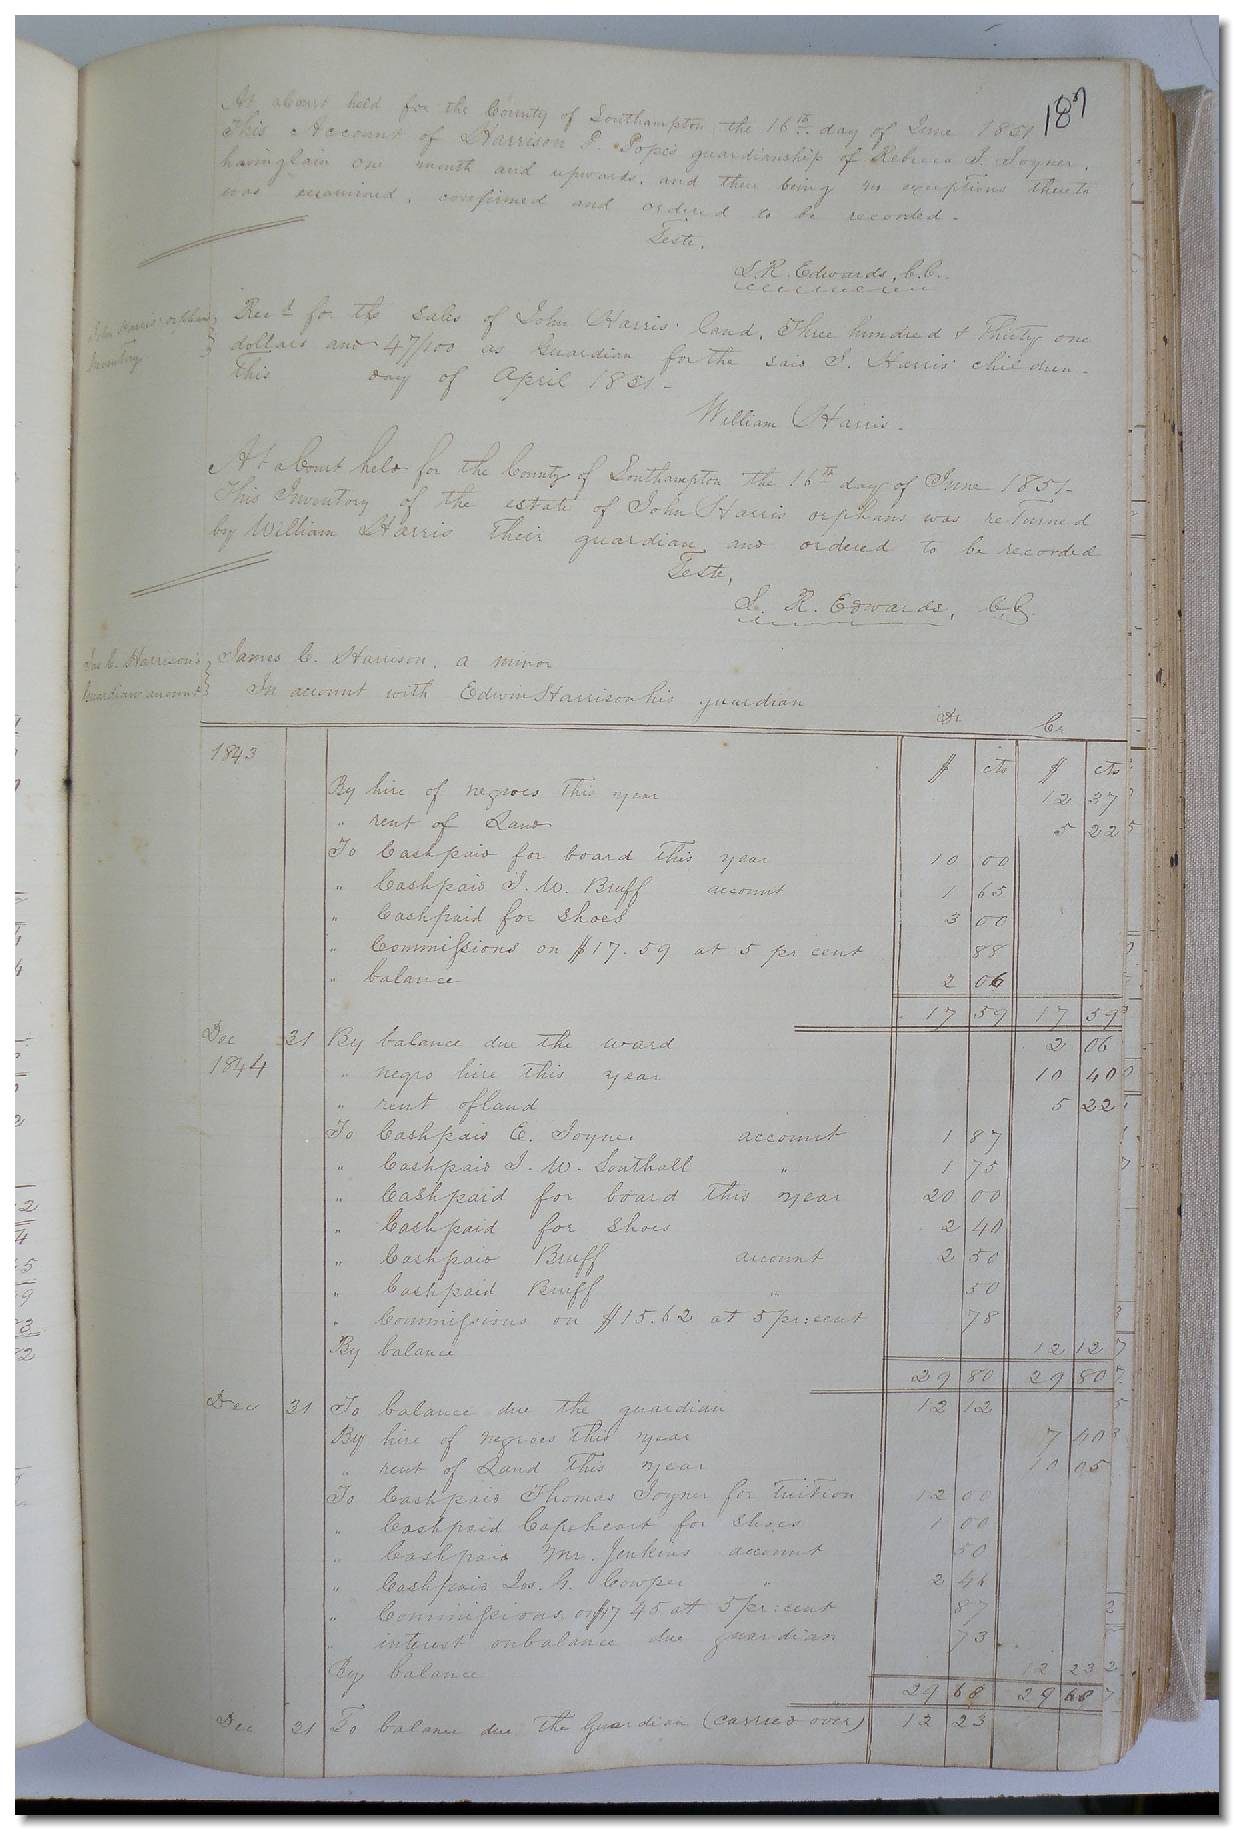 187
At a Court held for the County of Southampton the 16th day of June 1851
This Account of Harrison P. Pope's guardianship of Rebecca J. Joyner,
having lain one month and upwards, and there being no exceptions thereto
was examined, confirmed and ordered to be recorded.
Teste,
L. R. Edwards, C.C.
John Harris' orphans
Inventory
Recd for the sales of John Harris' land, Three hundred & Thirty one
dollars and 47/100 as Guardian for the said J. Harris' children.
This day of April 1851.
William Harris.
At a Court held for the County of Southampton the 16th day of June 1851.
This Inventory of the estate of John Harris orphans was returned
by William Harris their guardian and ordered to be recorded
Teste,
L. R. Edwards, C.C.
Jas C. Harrison's
Guardian account
James C. Harrison, a minor
In account with Edwin Harrison his guardian
Dr Cr
1843 $ cts $ cts
By hire of negroes this year 12 37
" rent of Land 5 22
To Cash paid for board this year 10 00
" Cash paid J. W. Bruff account 1 65
" Cash paid for shoes 3 00
" Commissions on $17.59 at 5 pr cent 88
" balance 2 06
17 59 17 59
Dec 31 By balance due the ward 2 06
1844 " negro hire this year 10 40
" rent of land 5 22
To Cash paid E. Joyner account 1 87
" Cash paid J. W. Southall " 1 75
" Cash paid for board this year 20 00
" Cash paid for shoes 2 40
" Cash paid Bruff account 2 50
" Cash paid Bruff " 50
" Commissions on $15.62 at 5 pr: cent 78
By balance 12 12
29 80 29 80
Dec 31 To balance due the guardian 12 12
By hire of negroes this year 7 40
" rent of Land this year 10 05
To Cash paid Thomas Joyner for tuition 12 00
" Cash paid Capeheart for shoes 1 00
" Cash paid Mr. Jenkins account 50
" Cash paid Jos. G. Cowper " 2 46
" Commissions on $17 45 at 5 pr: cent 87
" interest on balance due guardian 73
By balance 12 23
29 68 29 68
Dec 31 To balance due the Guardian (carried over) 12 23